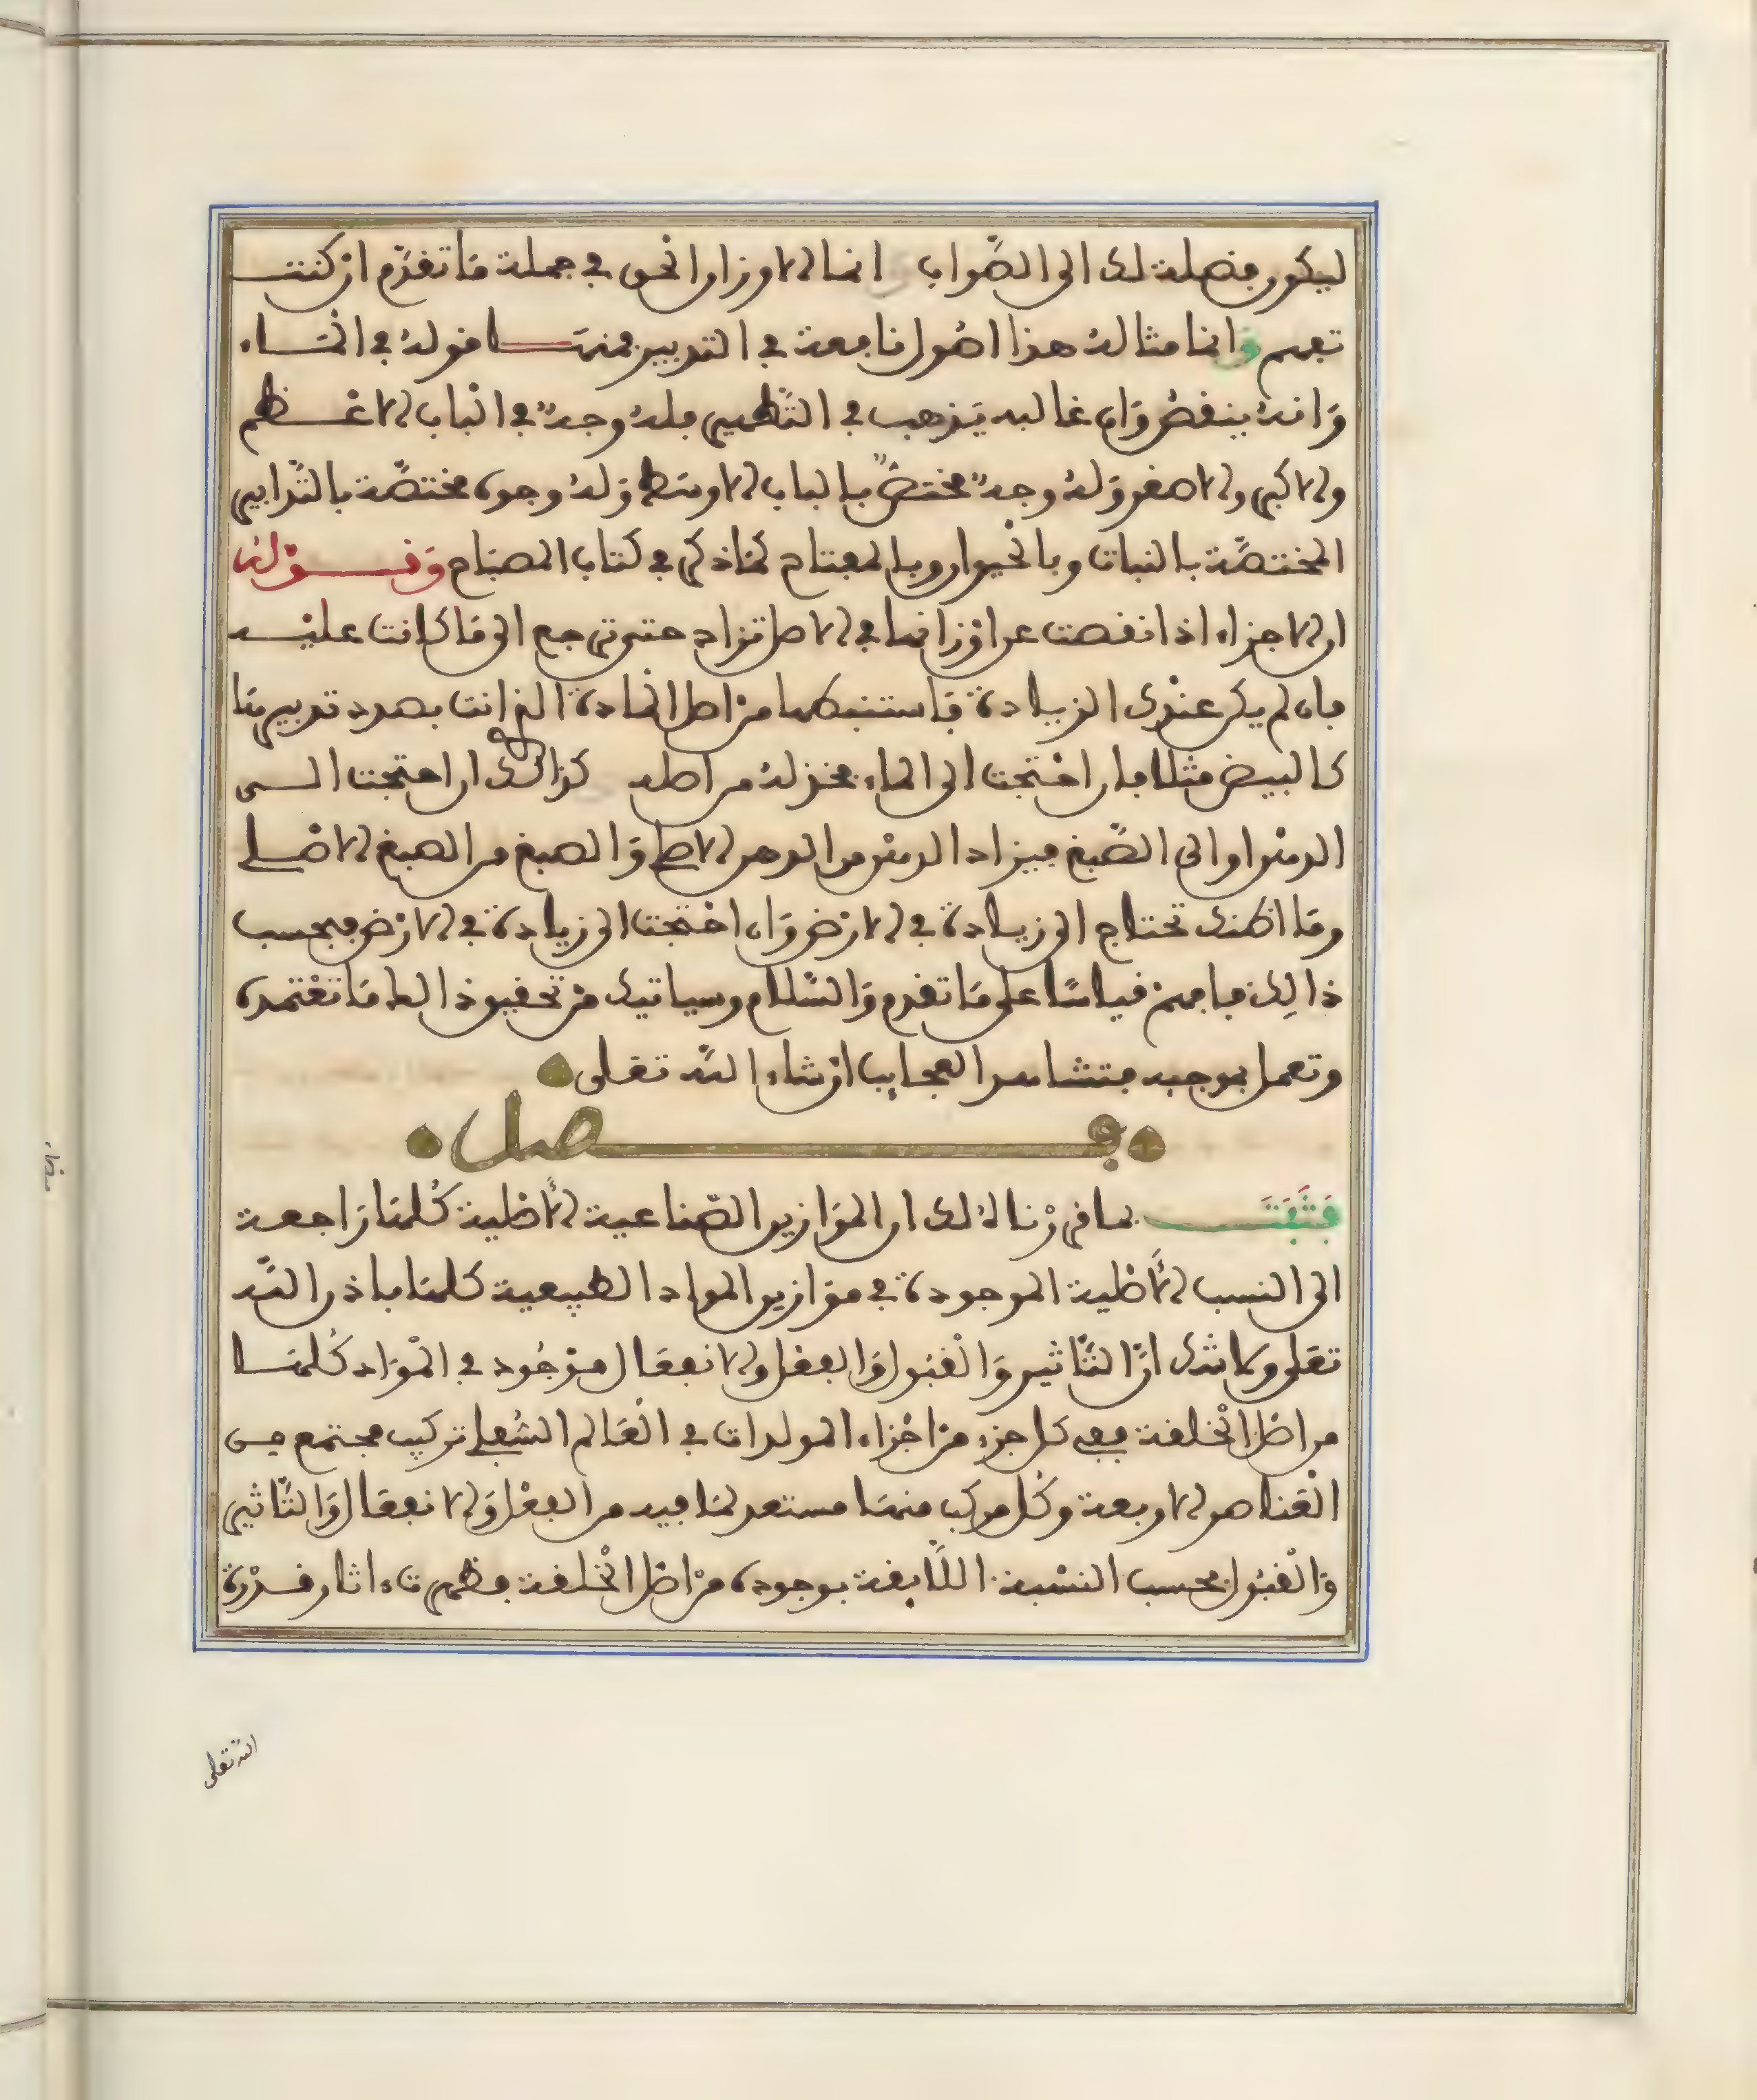 ليكون مصلة لك الى الصَّواب انما الاوزان الحق في جملة مَا تقدَّم ان كنت
تفهم وَانما مثاله هذا اصُول نافعة في التدبير فمنهَا قوله في المَاء
وَانهُ ينقصُ وَان غالبه يَذهب في التَّطهير فلهُ وجهٌ في البَاب الاعْظم
والاكبر والاصغر وَلهُ وجهٌ مختصٌّ بالباب الاوسَط وَلهُ وجوه مختصَّة بالتَّدابير
المختصَّة بالنبات وبالحْيوان وبالمفتاح كمَا ذكر في كتاب المصبَاح وَقَوْلهُ
ان الاجزاء اذا نقصت عن اوْزانها في الاصل تزاد حتى ترجع الى مَا كانت عليْه
فان لم يكن عنْدك الزيادة فَاستنبطها من اصل المَادة التي انت بصدد تدبيرهَا
كالبيض مثلا فان احْتجت الى الماء فخذ لهُ من اصله كذالك ان احتجت الى
الدهْن او الى الصَّبغ فيزاد الدهْن من الدهن الاصلي وَالصبغ من الصبغ الاصْلي
ومَا اظنك تحتاج الى زيادة في الارْض وَان احْتجت الى زيادة في الارْض فبحسب
ذالِك فافهمْ قياسًا على مَا تقدم وَالسَّلام وسياتيك منْ تحقيق ذالك مَا تعْتمده
وتعمل بموجبه فتشاهد العجايب ان شاء اللَّه تعَلى
فصل
فَثَبَتَ بما قررْناهُ لك ان الموَازين الصّناعية الأصْلية كُلهَا رَاجعة
الى النسب الأصْلية الموجودة في موَازين المواد الطبيعية كلهَا باذن اللَّه
تعَلى ولا شك انَّ التَّاثير وَالقبُول وَالفعْل والانفعَال موْجُود في الموَاد كُلهَا
من اصْل الخْلقة ففي كل جزء منْ اجْزاء المولدات في العَالم السُّفلي تركيب مجتمع من
العَناصر الاربعة وكُل مركب منهَا مستعد لمَا فيه من الفعْل وَالانفعَال وَالتَّاثير
وَالقبُول بحسب النسْبة اللَّايقة بوجوده منْ اصْل الخْلقة فظهرت ءاثار قدْرة
اللّه تعلى